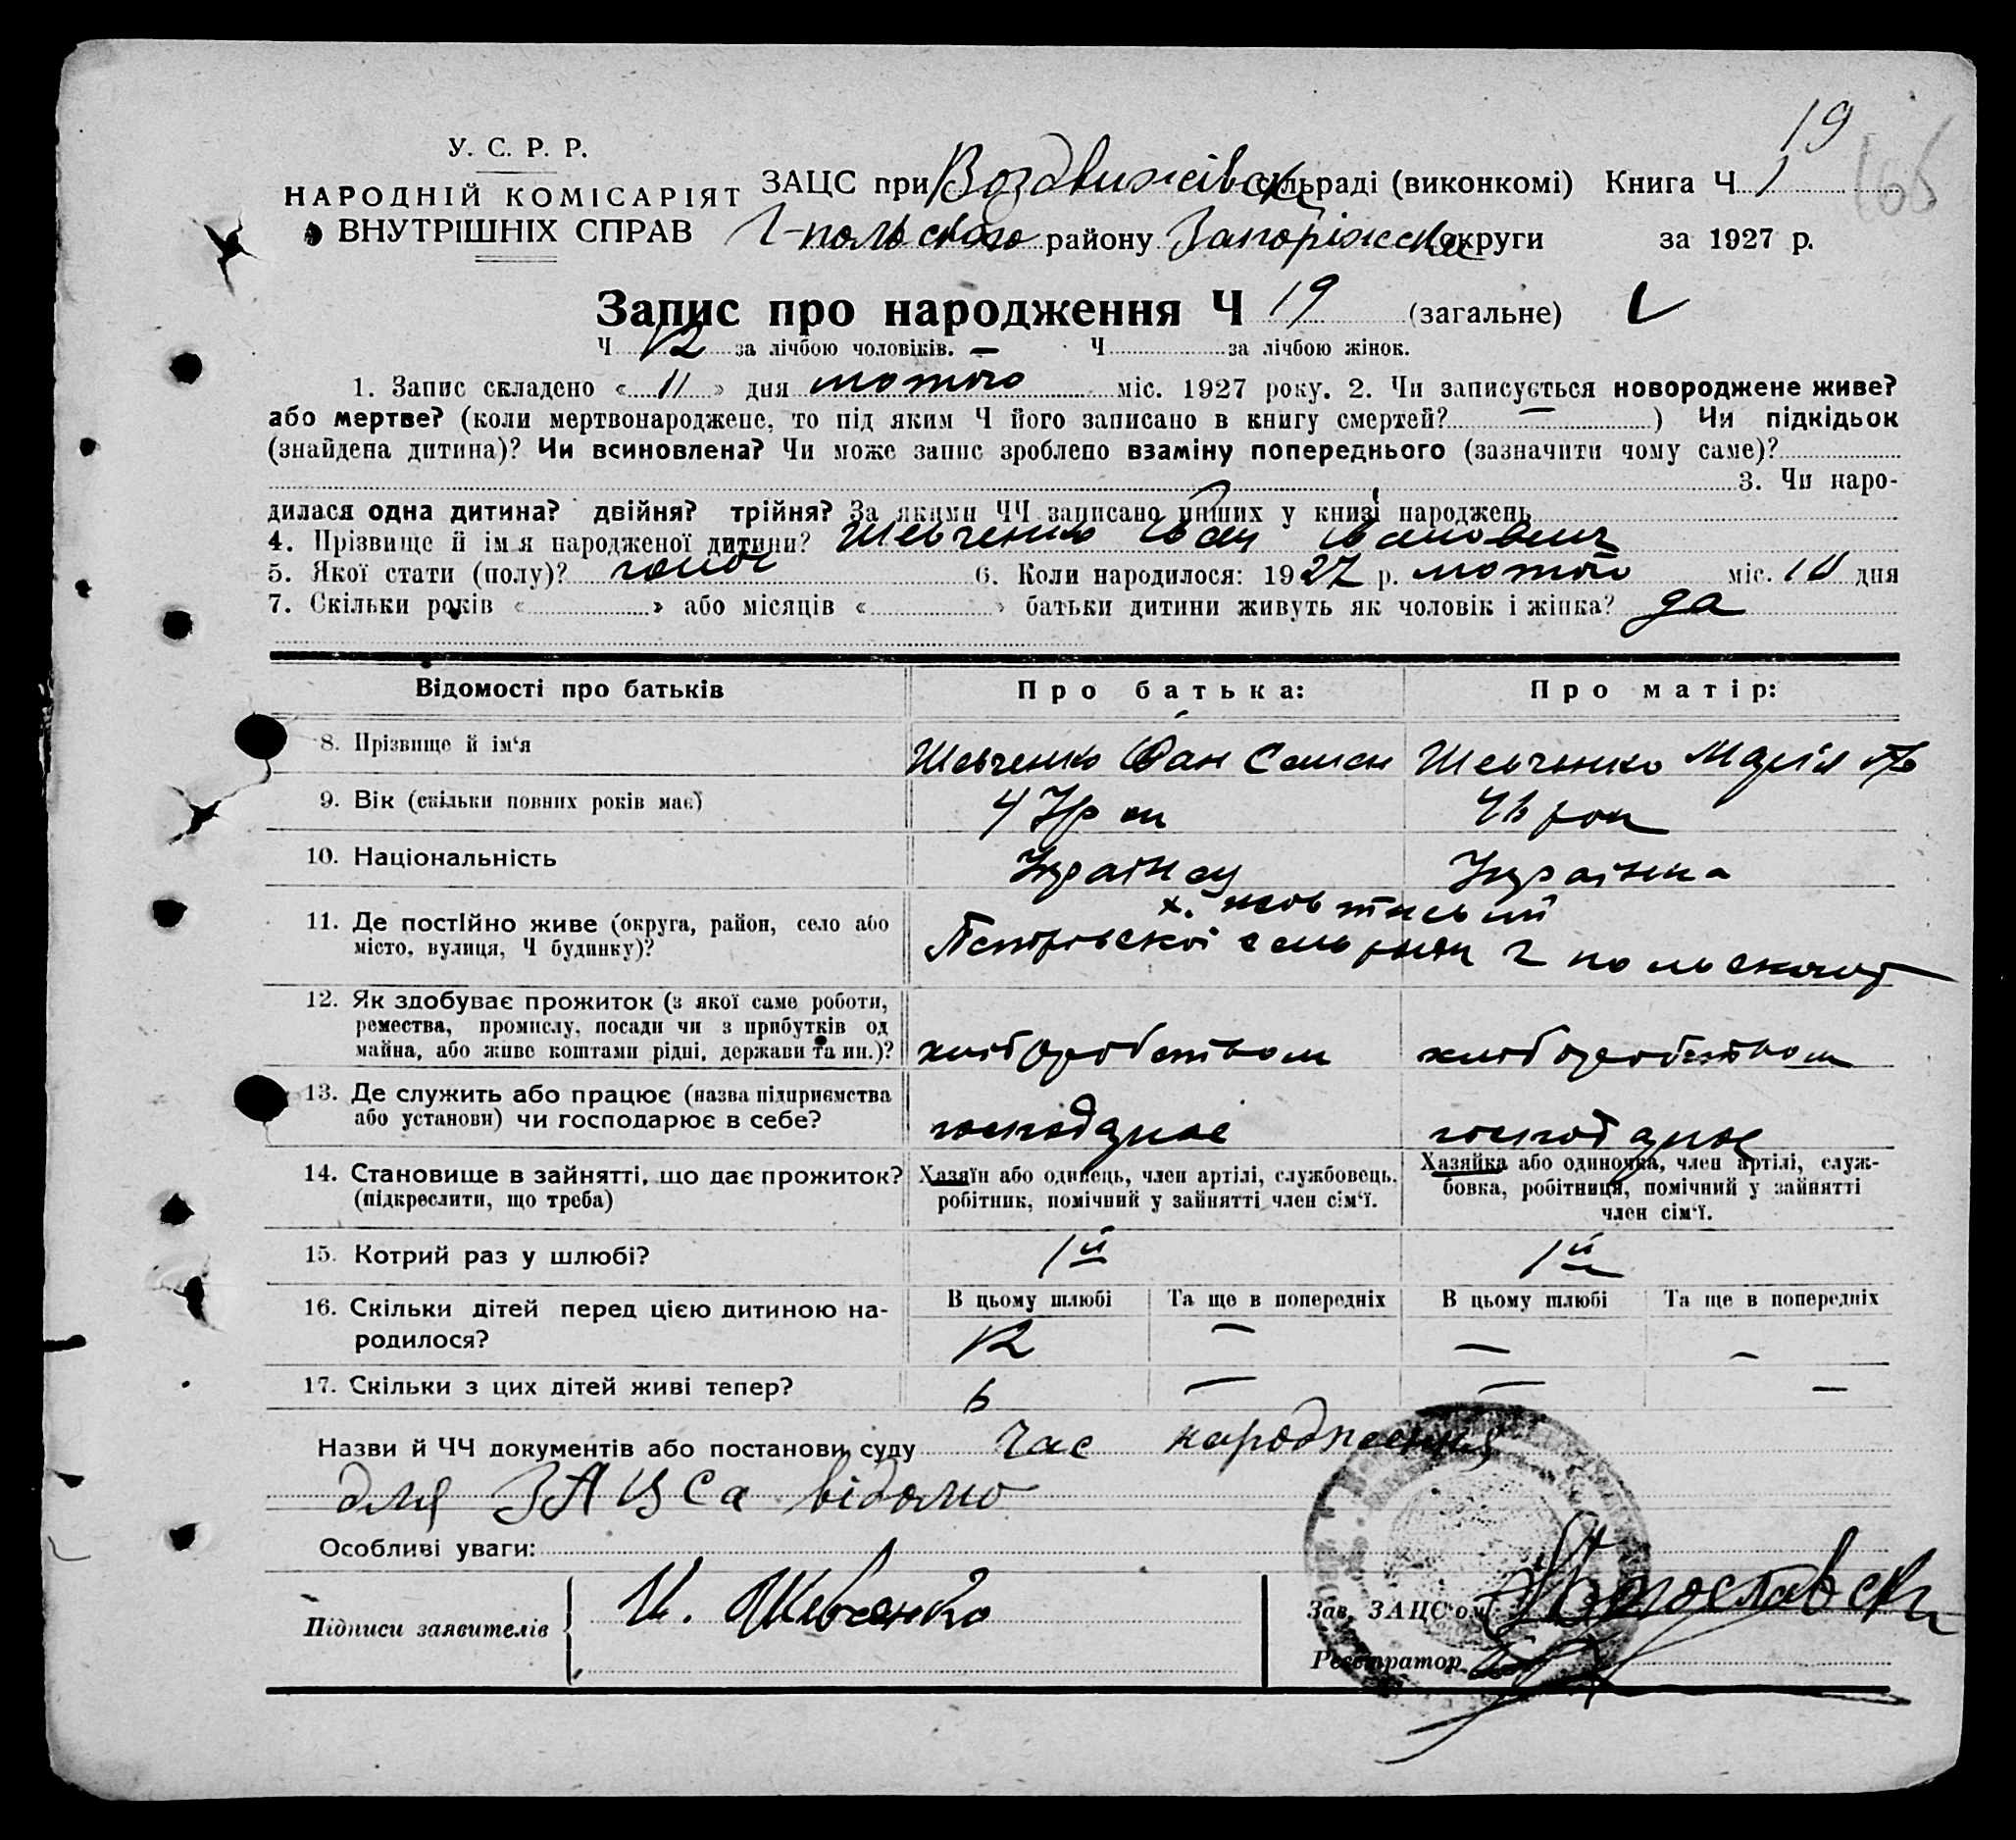 19
У. С. Р. Р.
НАРОДНІЙ КОМІСАРІЯТ
ВНУТРІШНІХ СПРАВ
ЗАЦС при Воздвижівськ сільраді (виконкомі) Книга Ч. 1
Г-польського району Запоріжськ округи за 1927 р.
Запис про народження Ч 19 (загальне)
Ч 12 за лічбою чоловіків. — Ч за лічбою жінок.
1. Запис складено « 11 » дня лютого міс. 1927 року. 2. Чи записується новороджене живе?
або мертве? (коли мертвонароджене, то під яким Ч його записано в книгу смертей? — ) Чи підкідьок
(знайдена дитина)? Чи всиновлена? Чи може запис зроблено взаміну попереднього (зазначити чому саме)?
3. Чи наро-
дилася одна дитина? двійня? трійня? За якими ЧЧ записано инших у книзі народжень
4. Прізвище й імя народженої дитини? Шевченко Іван Іванович
5. Якої стати (полу)? 6. Коли народилося: 1927 р. лютого міс. 10 дня
7. Скільки років « » або місяців « » батьки дитини живуть як чоловік і жінка? да
Відомості про батьків Про батька: Про матір:
8. Прізвище й ім'я Шевченко Іван Семен Шевченко Марія
9. Вік (скільки повних років має) 47
10. Національність Українец Українка
11. Де постійно живе (округа, район, село або
місто, вулиця, Ч будинку)? х.
Петровской
12. Як здобуває прожиток (з якої саме роботи,
ремества, промислу, посади чи з прибутків од
майна, або живе коштами рідні, держави та ин.)? хліборобством хліборобством
13. Де служить або працює (назва підприємства
або установи) чи господарює в себе? господарює господарює
14. Становище в зайнятті, що дає прожиток?
(підкреслити, що треба)
Хазяїн або одинець, член артілі, службовець,
робітник, помічний у зайнятті член сім'ї.
Хазяйка або одиночка, член артілі, служ-
бовка, робітниця, помічний у зайнятті
член сім'ї.
15. Котрий раз у шлюбі? 1й 1й
16. Скільки дітей перед цією дитиною на-
родилося?
В цьому шлюбі Та ще в попередніх В цьому шлюбі Та ще в попередніх
12 — — —
17. Скільки з цих дітей живі тепер? 6 — — —
Назви й ЧЧ документів або постанови суду час народження
для ЗАЦСа відомо
Особливі уваги:
Підписи заявителів И. Шевченко
Зав. ЗАЦС'ом
Реєстратор